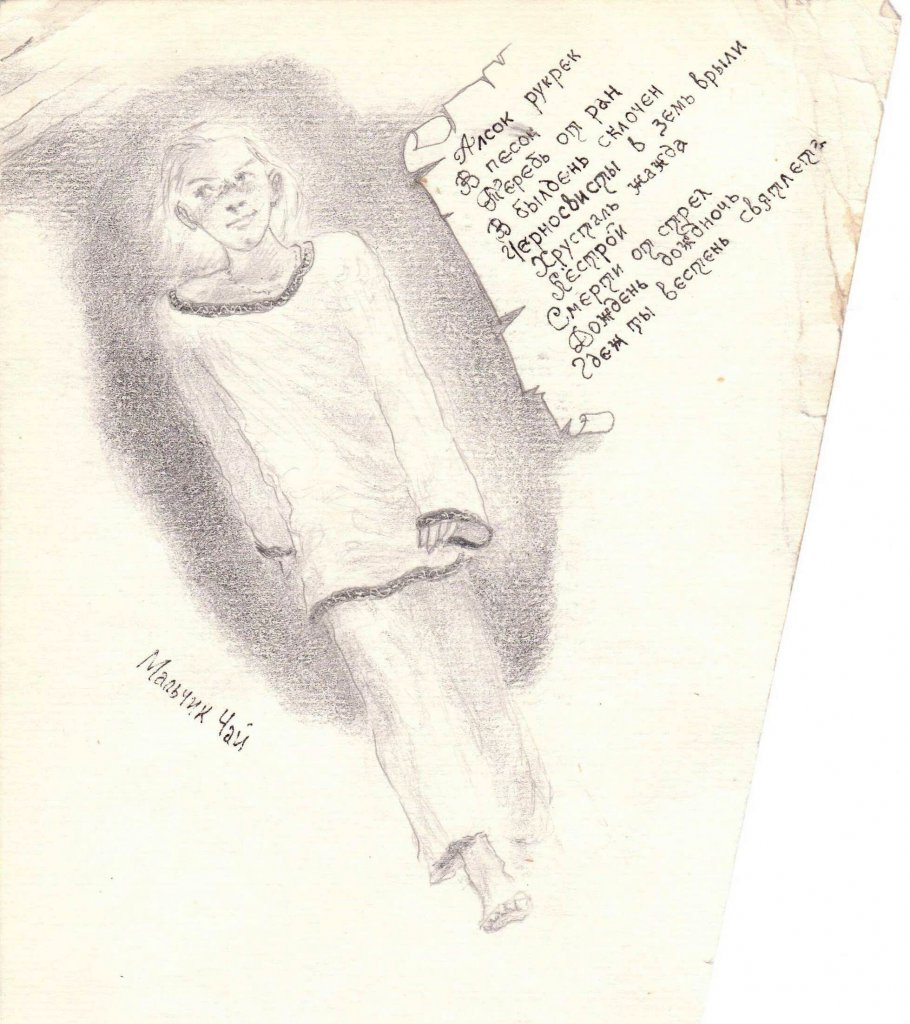 Алсок рукрек
В песок
Теребь от ран
В былдень склочен
Черносвисты в земь врыли
Хрусталь жажда
Пёстрой
Смерти от стрел
Дождень дождночь
Гдеж ты вестень святлет
Мальчик Чай